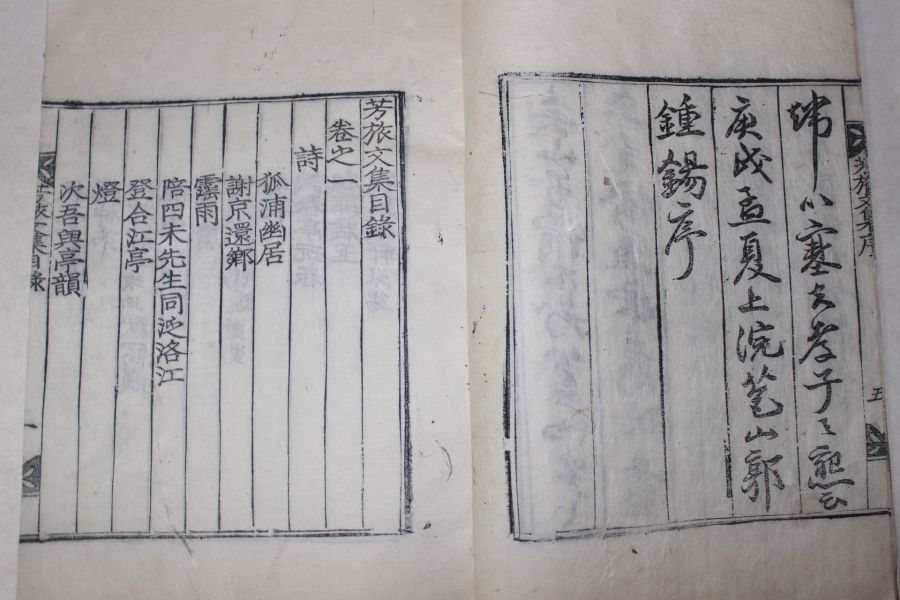 芳旅文集序
五
緯以塞夫孝子之懃云
庚戌孟夏上浣苞山郭
鍾錫序
芳旅文集目錄
卷之一
詩
狐浦幽居
謝京還鄉
霪雨
陪四未先生同泛洛江
登合江亭
燈
次吾與亭韻
芳旅文集目錄
一